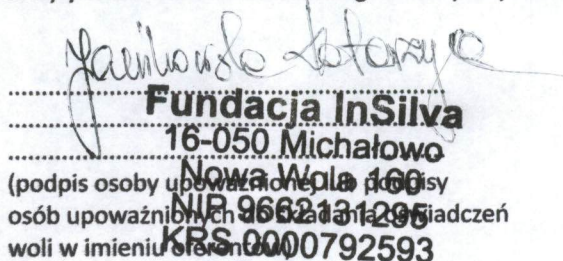 Katarzyna
Fundacja InSilva
16-050 Michałowo
Nowa Wola 160
NIP 9662131295
KRS 0000792593
(podpis osoby upoważnionej lub podpisy
osób upoważnionych do składania oświadczeń
woli w imieniu oferentów)